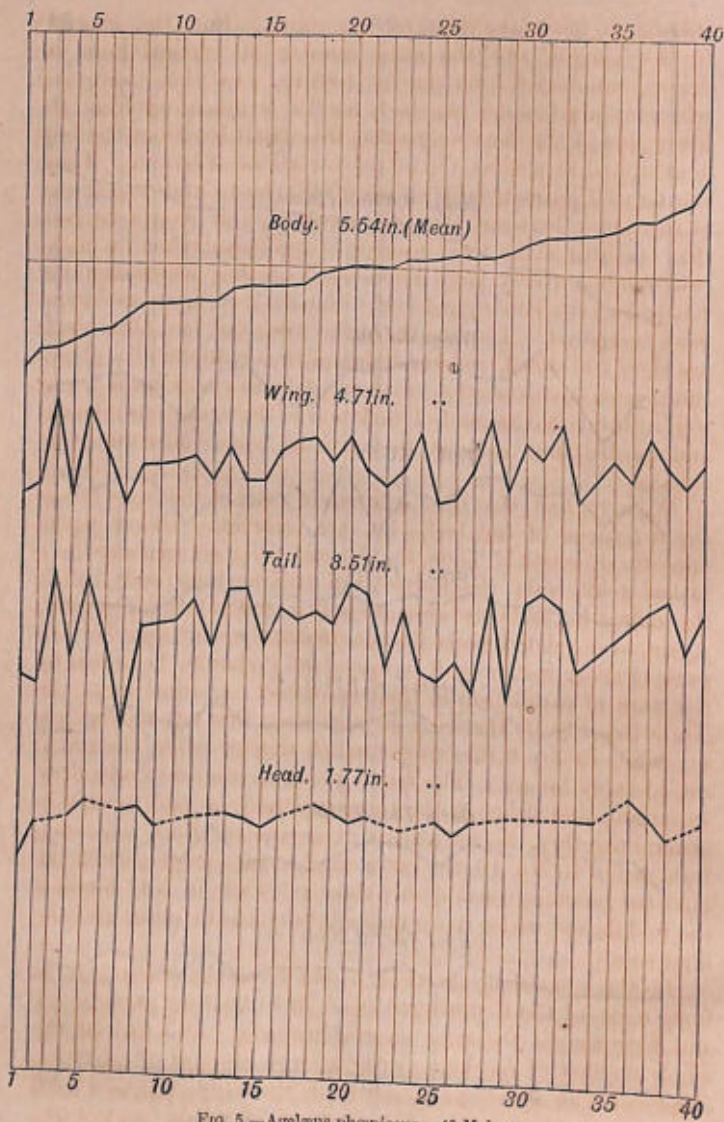 1 5 10 15 20 25 30 35 40
Body. 5.54in.(Mean)
Wing. 4.71in. ..
Tail. 3.51in. ..
Head. 1.77in. ..
1 5 10 15 20 25 30 35 40
FIG. 5.—Agelæus phœniceus. 40